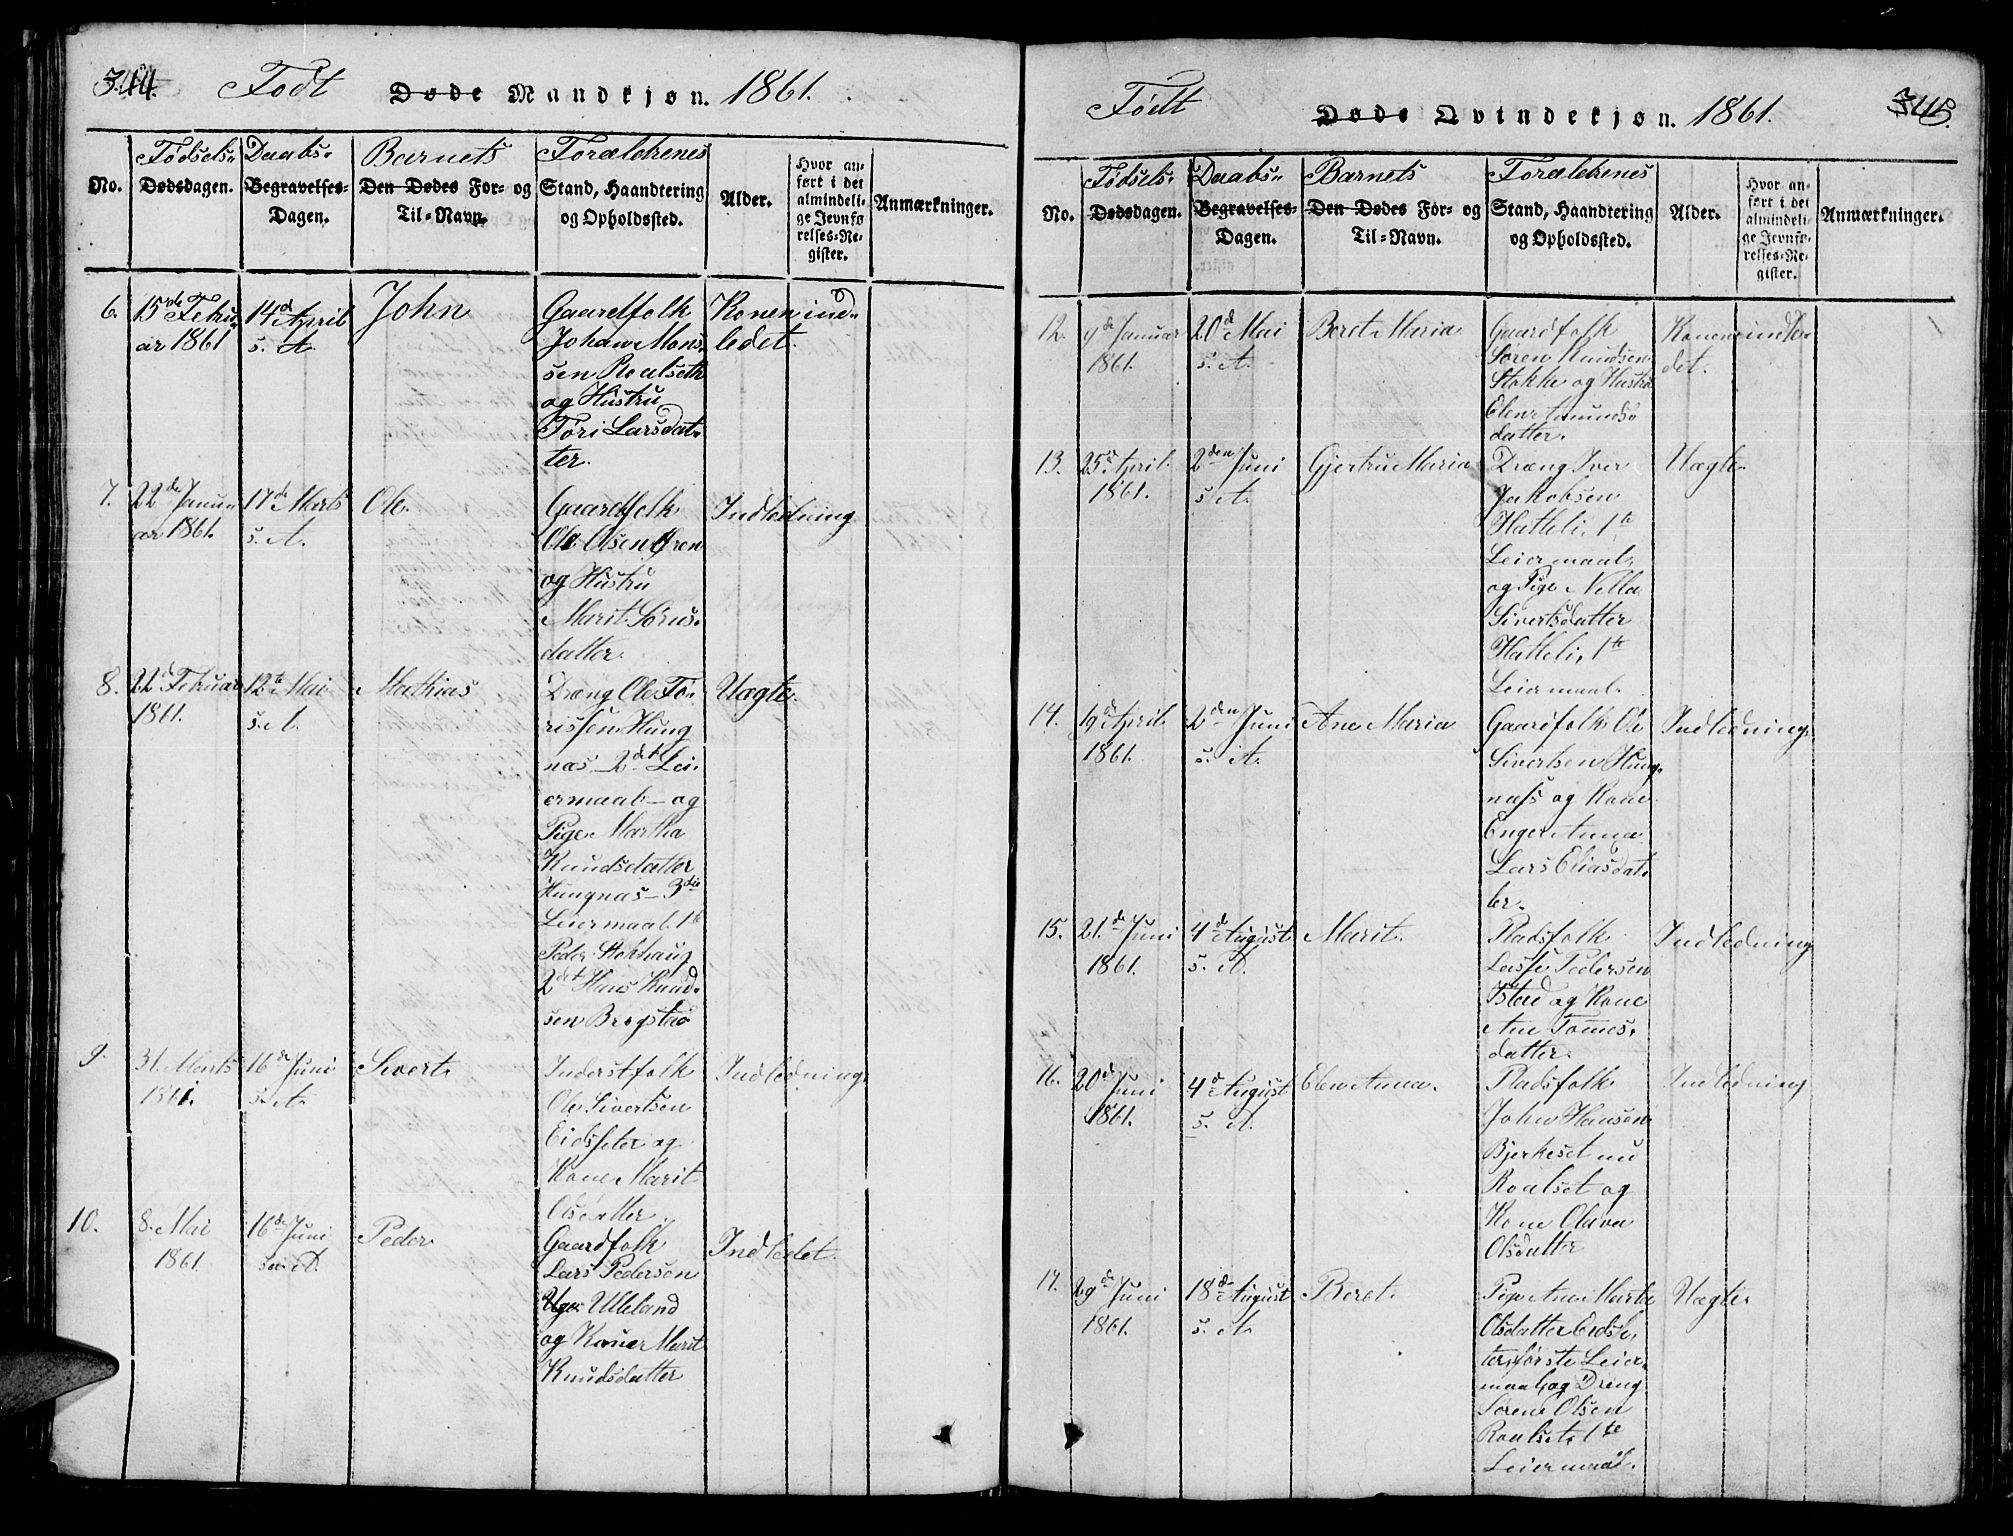 344.
Født Døde Mandkjøn. 1861.
No.
Fødsels=
Dødsdagen.
Daabs=
Begravelses=
Dagen.
Barnets
Den Dødes For= og
Til=Navn.
Forældrenes
Stand, Haandtering
og Opholdssted.
Alder.
Hvor an-
ført i det
almindeli-
ge Jevnfø
relses=Re-
gister.
Anmærkninger.
6.
15de Febru-
ar 1861
14d April
s. A.
John
Gaardfolk
Johan Mons-
sen Roalseth
og Hustru
Tori Larsdat-
ter.
Konen ind-
ledet.
7.
22de Janu-
ar 1861.
17de Marts
s. A.
Ole.
Gaardfolk
Ole Olsen Øren
og Hustru
Marit Sørens-
datter.
Indledning
8.
22d Februar
1861.
12te Mai
s. A.
Mathias
Dræng Ole To-
rissen Hung
næs 2det Lei-
ermaal - og
Pige Martha
Knudsdatter
Hungnæs - 3die
Leiermaal. 1te
Peder Stokhaug
2det Hans Knud-
sen Brogstad
Uægte.
9.
31. Marts
1861.
16de Juni
s. A.
Sivert.
Inderstfolk
Ole Sivertsen
Eidsseter og
Kone Marit
Olsdatter.
Indledning.
10.
8. Mai
1861.
16de Juni
s. A.
Peder.
Gaardfolk
Lars Pedersen
Ulleland
og Kone Marit
Knudsdatter
Indledet.
345.
Født Døde Qvindekjøn. 1861.
No.
Fødsels=
Dødsdagen.
Daabs=
Begravelses=
Dagen.
Barnets
Den Dødes For= og
Til=Navn.
Forældrenes
Stand, Haandtering
og Opholdssted.
Alder.
Hvor an-
ført i det
almindeli-
ge Jevnfø-
relses=Re-
gister.
Anmærkninger.
12.
9de Januar
1861.
20d Mai
s. A.
Beret Maria
Gaardfolk
Søren Knudsen
Stokke og Hustru
Elen Amunds-
datter.
Konen indle-
det.
13.
25d April
1861.
2den Juni
s. A.
Gjertru Maria
Dræng Iver
Jakobsen
Hatteli, 1te
Leiermaal,
og Pige Nilla
Sivertsdatter
Hatteli, 1te
Leiermaal.
Uægte.
14.
19d April
1861.
2den Juni
s. A.
Ane Maria
Gaardfolk Ole
Sivertsen Hung-
næss og Kone
Enger Anna
Lars Eliasdat-
ter.
Indledning.
15.
21.de Juni
1861.
4de August
s. A.
Marit.
Pladsfolk
Lasse Pedersen
Istad og Kone
Ane Tomes-
datter.
Indledning
16.
20d Juni
1861.
4d August
s. A.
Elen Anna.
Pladsfolk
John Hansen
Bjerkeset nu
Roalset og
Kone Olava
Olsdatter
Indledning
17.
29de Juni
1861.
18de August
s. A.
Beret.
Pige Ane Marta
Olsdatter Eidse-
ter, første Leier-
maal, og Dreng
Sørene Olsen
Roalset, 1te
Leiermaal.
Uægte.